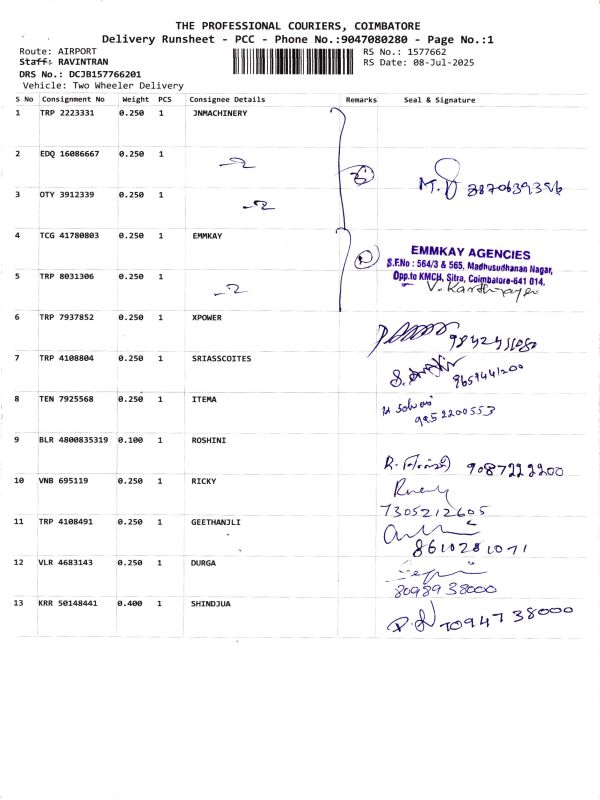 THE PROFESSIONAL COURIERS, COIMBATORE
Delivery Runsheet - PCC - Phone No.:9047080280 - Page No.:1
Route: AIRPORT
RS No.: 1577662
Staff: RAVINTRAN
RS Date: 08-Jul-2025
DRS No.: DCJB157766201
Vehicle: Two Wheeler Delivery
S No Consignment No Weight PCS Consignee Details Remarks Seal & Signature
1 TRP 2223331 0.250 1 JNMACHINERY
2 EDQ 16086667 0.250 1
3 OTY 3912339 0.250 1
4 TCG 41780803 0.250 1 EMMKAY
EMMKAY AGENCIES
S.F.No : 564/3 & 565, Madhusudhanan Nagar,
Opp.to KMCH, Sitra, Coimbatore-641 014.
5 TRP 8031306 0.250 1
6 TRP 7937852 0.250 1 XPOWER
7 TRP 4108804 0.250 1 SRIASSCOITES
8 TEN 7925568 0.250 1 ITEMA
9952200553
9 BLR 4800835319 0.100 1 ROSHINI
9087222200
10 VNB 695119 0.250 1 RICKY
7305212605
11 TRP 4108491 0.250 1 GEETHANJLI
8610281071
12 VLR 4683143 0.250 1 DURGA
8098938000
13 KRR 50148441 0.400 1 SHINDJUA
7094738000